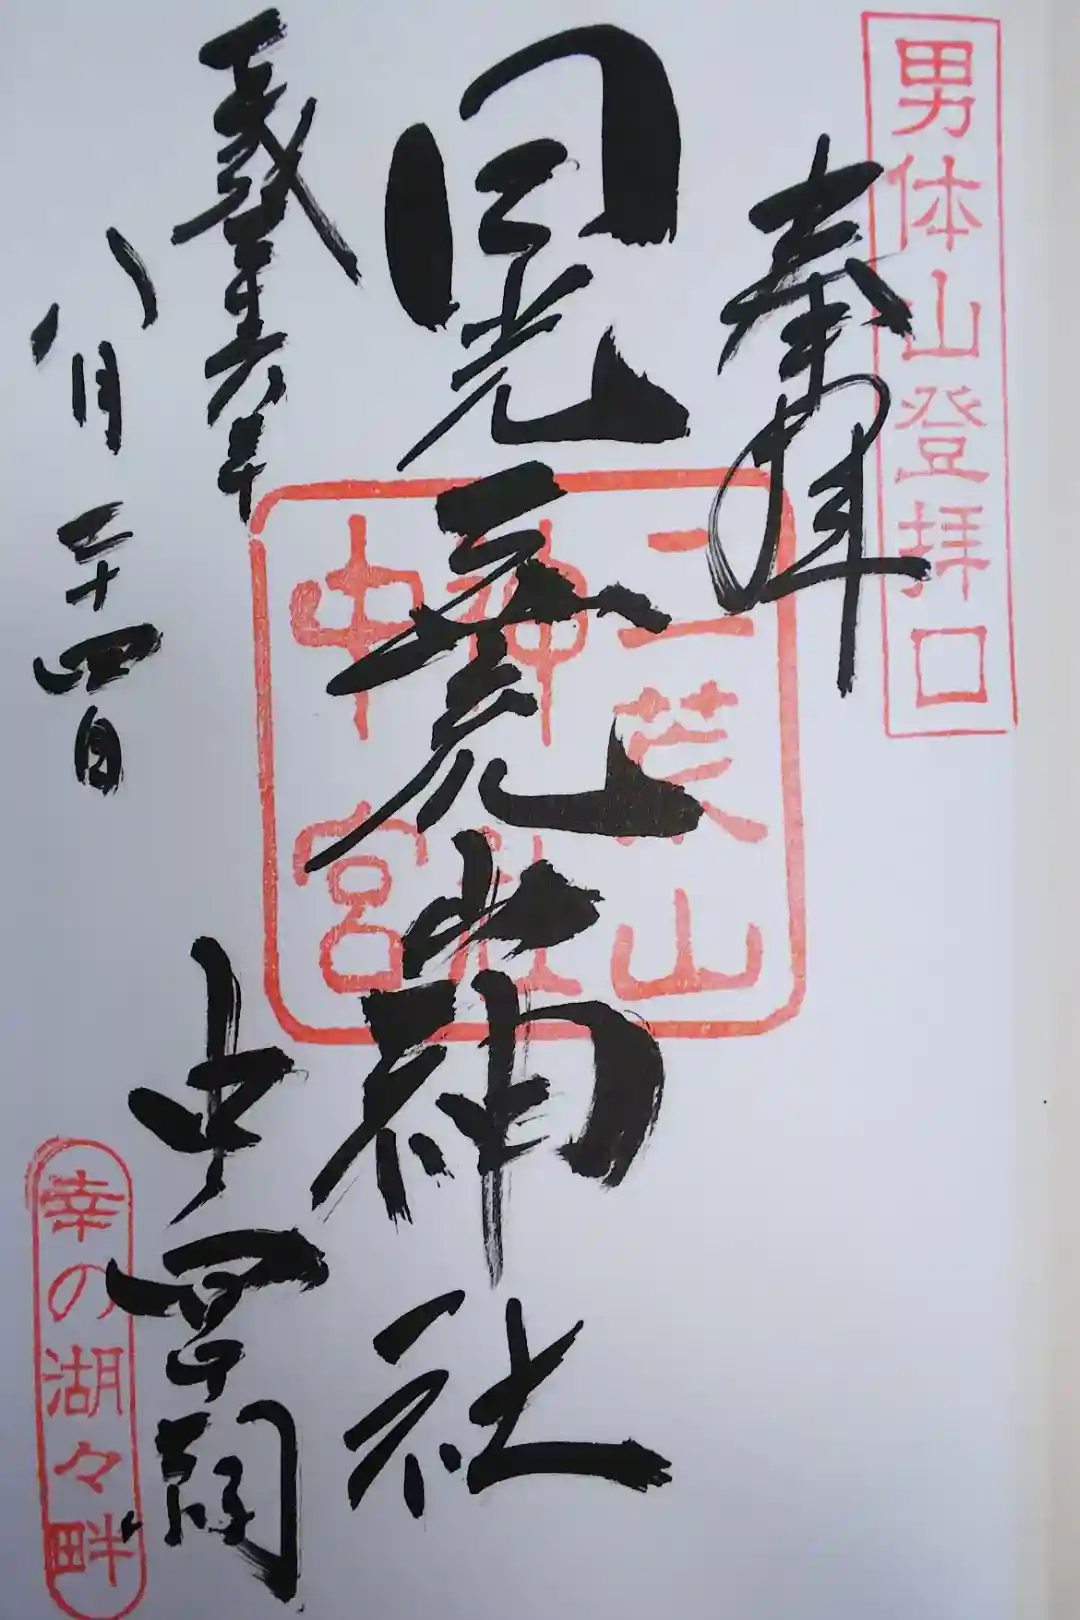 男体山登拝口
奉拝
日光二荒山神社
二荒山
神社
中宮
平成二十六年
八月二十四日
中宮祠
幸の湖々畔